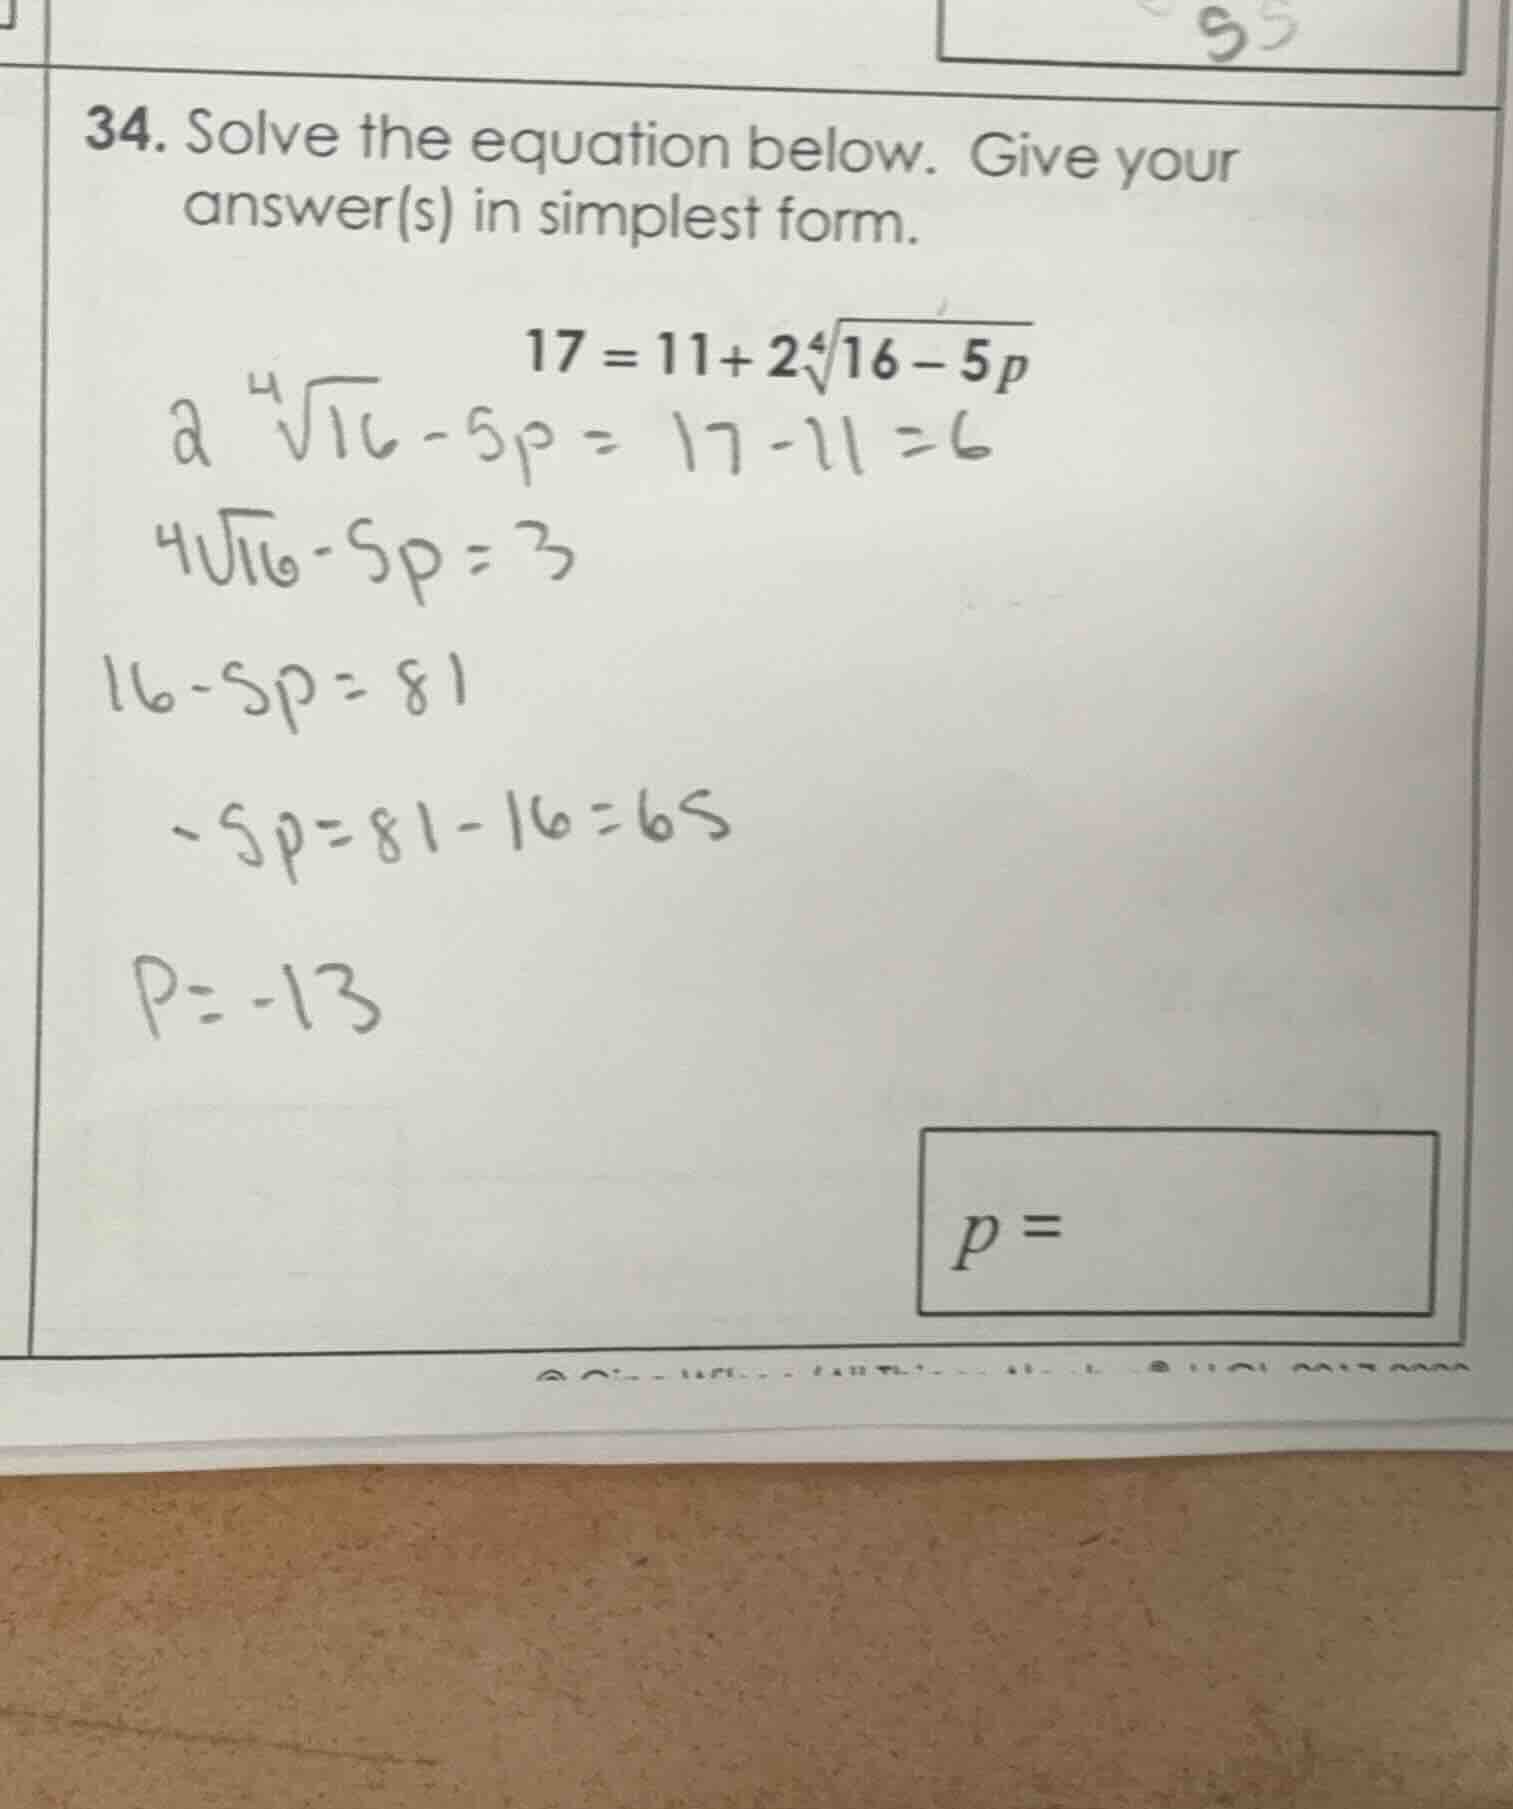 S S
34. Solve the equation below. Give your
answer(s) in simplest form.
17 = 11 + 2∜(16 – 5p)
2 ∜16 - 5p = 17 - 11 = 6
4√16 - 5p = 3
16 - 5p = 81
- 5p = 81 - 16 = 65
P = -13
p =